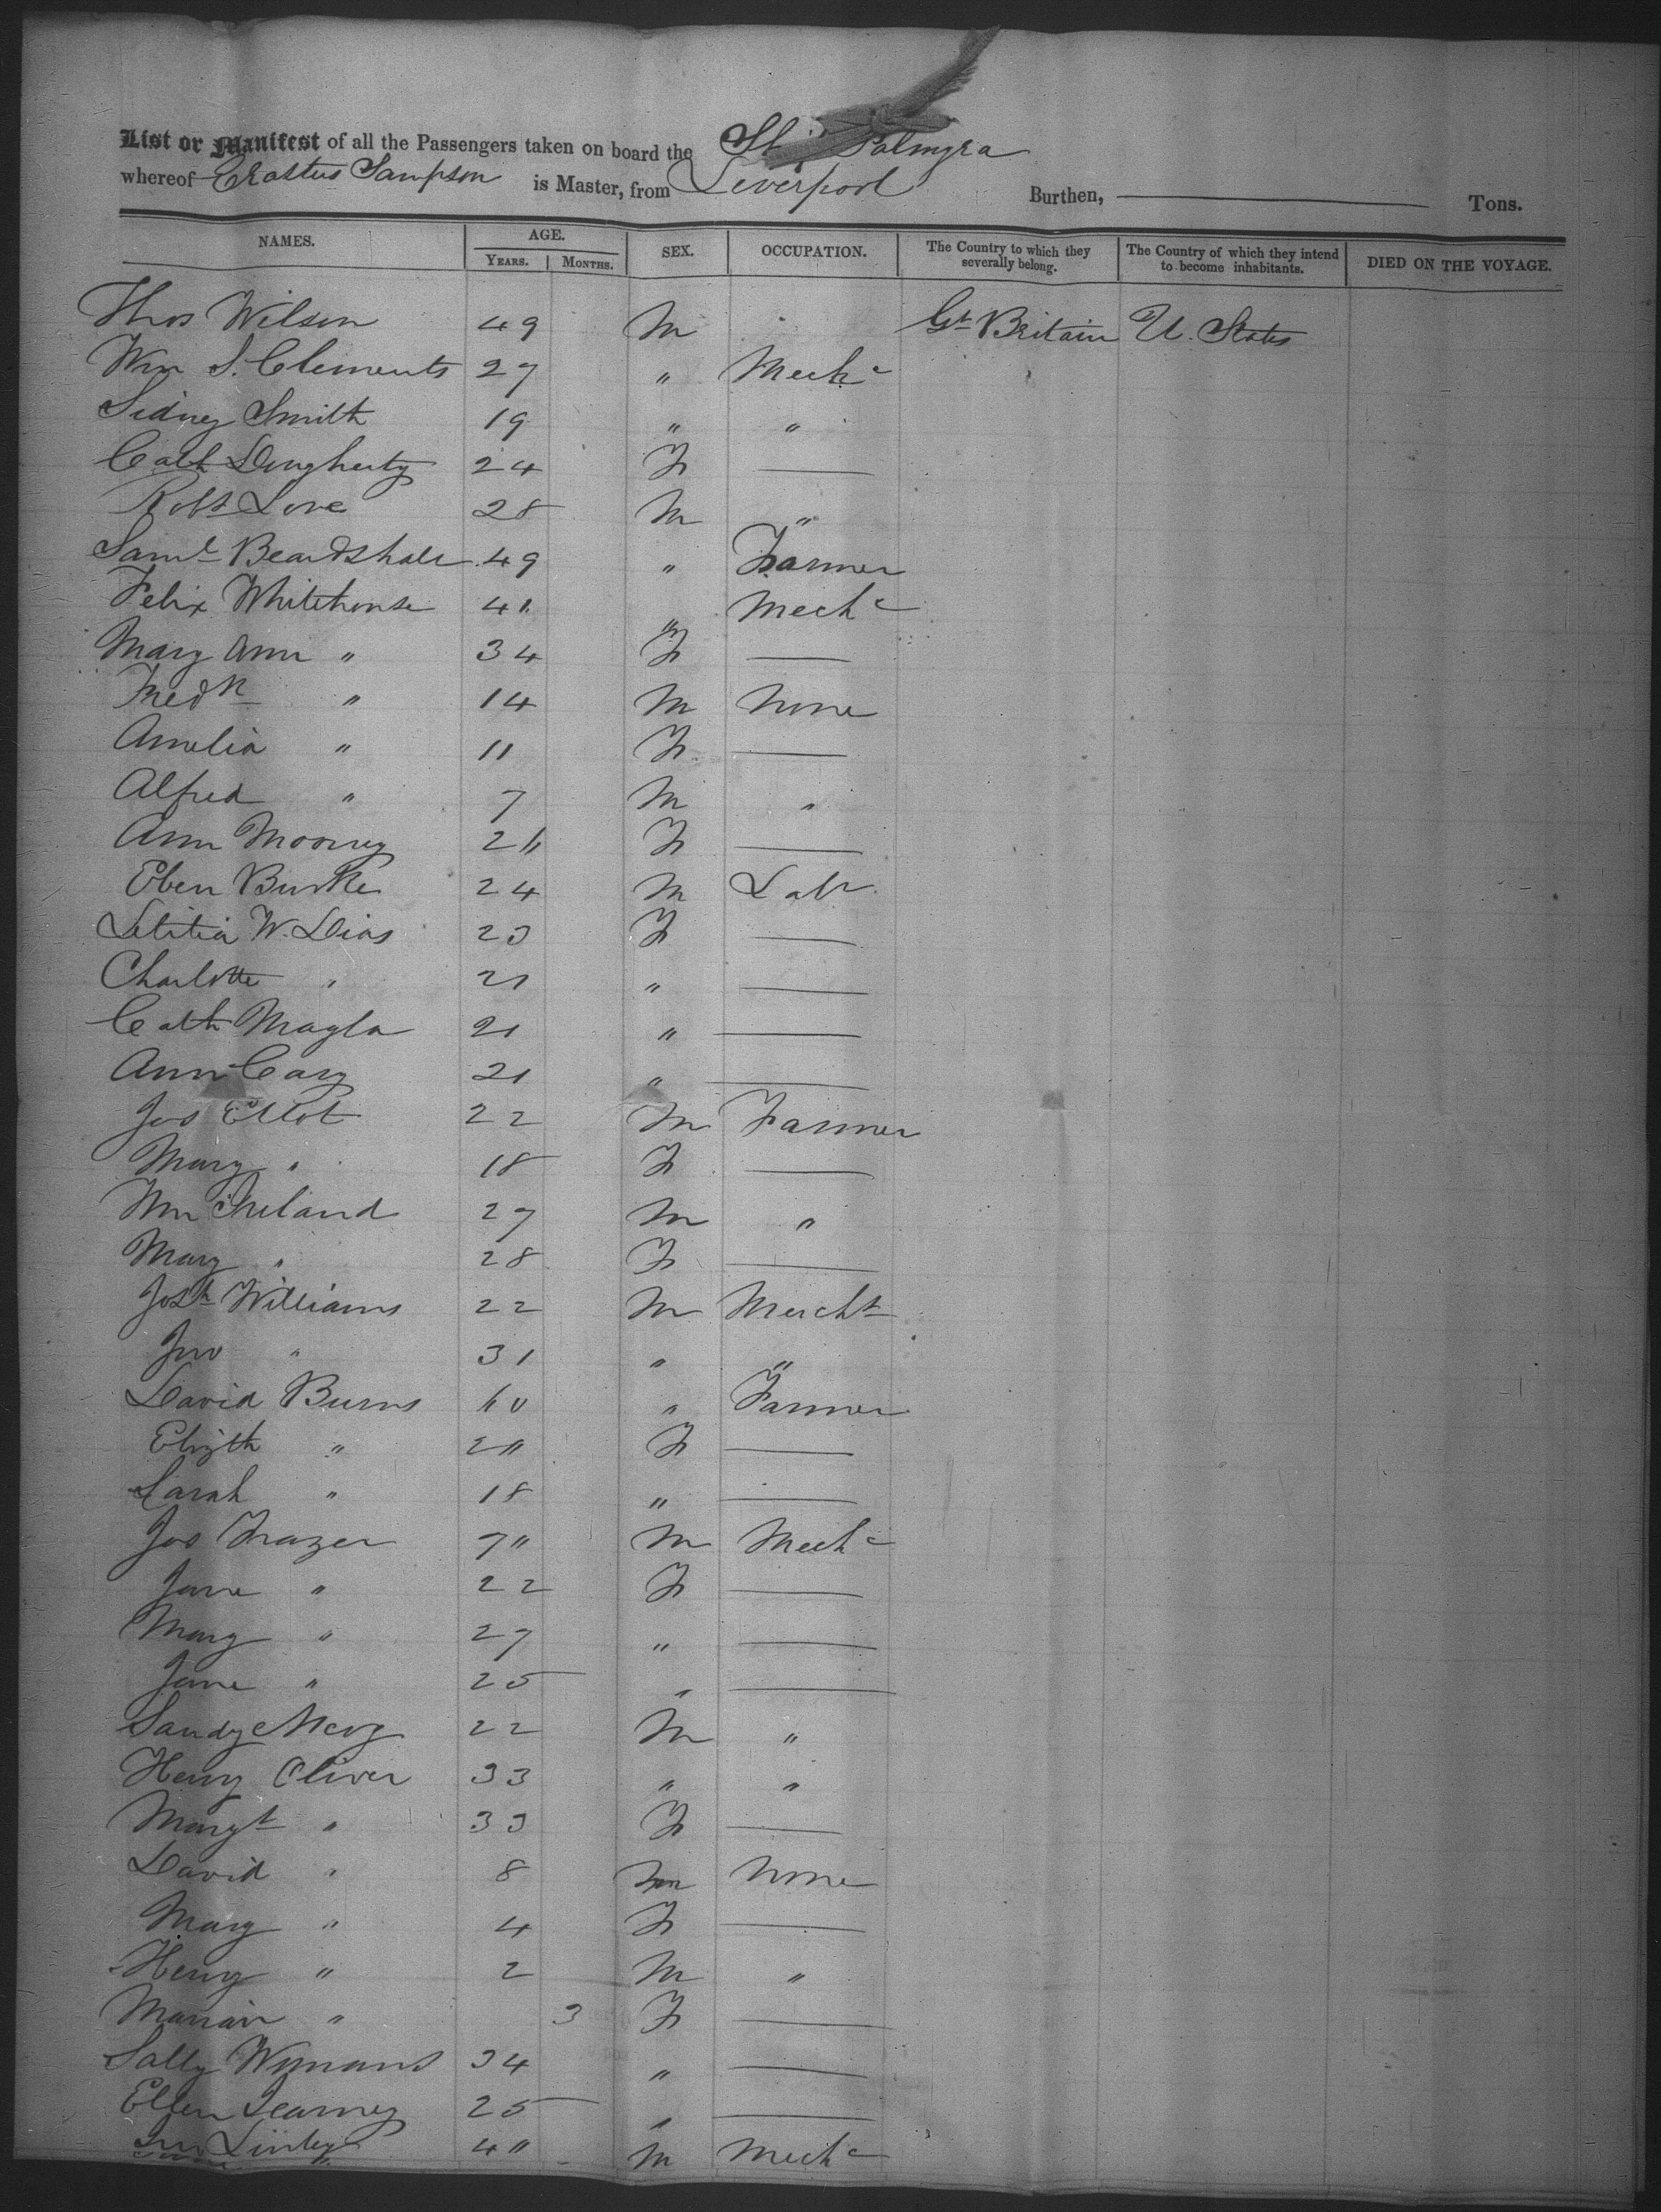 List or Manifest of all the Passengers taken on board the St Palmyra
whereof Erastus Sampson is Master, from Liverpool Burthen, Tons.
NAMES. AGE. YEARS. MONTHS. SEX. OCCUPATION. The Country to which they severally belong. The Country of which they intend to become inhabitants. DIED ON THE VOYAGE.
Thos Wilson 49 M Gt Britain U. States
Wm S. Clements 27 " Mechc
Sidney Smith 19 " "
Cath Dougherty 24 F
Robt Love 28 M "
Saml Beardshall 49 " Farmer
Felix Whitehouse 41 " Mechc
Mary Ann " 34 F
Fredk " 14 M None
Amelia " 11 F
Alfred " 7 M "
Ann Mooney F
Eben Burke 24 M Labr
Letitia W. Dias 23 F
Charlotte " 21 "
Cath 21 "
Ann Cary 21 "
Jas Ellot 22 M Farmer
Mary " 18 F
Wm 27 M "
Mary " 28 F
Josh Williams 22 M Mercht
Jno " 31 " "
David Burns " Farmer
Elizth " F
Sarah " 18 "
Jas Frazer M Mechc
Jane " 22 F
Mary " 27 "
Jane " 25 "
Sandy 22 M "
Henry Oliver 33 " "
Margt " 33 F
David " 8 M None
Mary " 4 F
Henry " 2 M "
" 3 F
Sally 34 "
Ellen 25 "
Jno Linley M Mechc